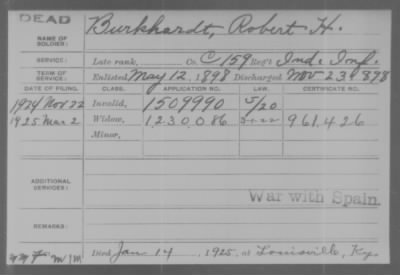 DEAD
NAME OF SOLDIER: Burkhardt, Robert H.
SERVICE: Late rank, Co. C 159 Reg't Ind. Inf.
TERM OF SERVICE: Enlisted May 12, 1898 Discharged Nov 23 1898
DATE OF FILING. CLASS. APPLICATION NO. LAW. CERTIFICATE NO.
1924 Nov 22 Invalid, 1509990 5/20
1925 Mar 2 Widow, 1230086 961.426
Minor,
ADDITIONAL SERVICES:
War with Spain.
REMARKS:
Died Jan 14, 1925, at Louisville, Ky.